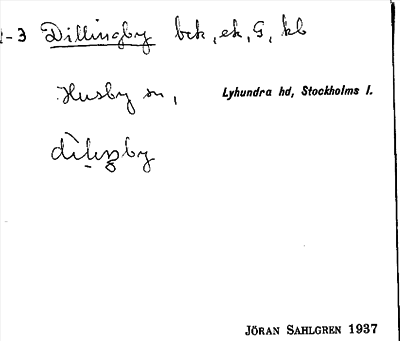 1-3 Dillingby bck, ek, G, kb
Husby sn, Lyhundra hd, Stockholms l.
JÖRAN SAHLGREN 1937